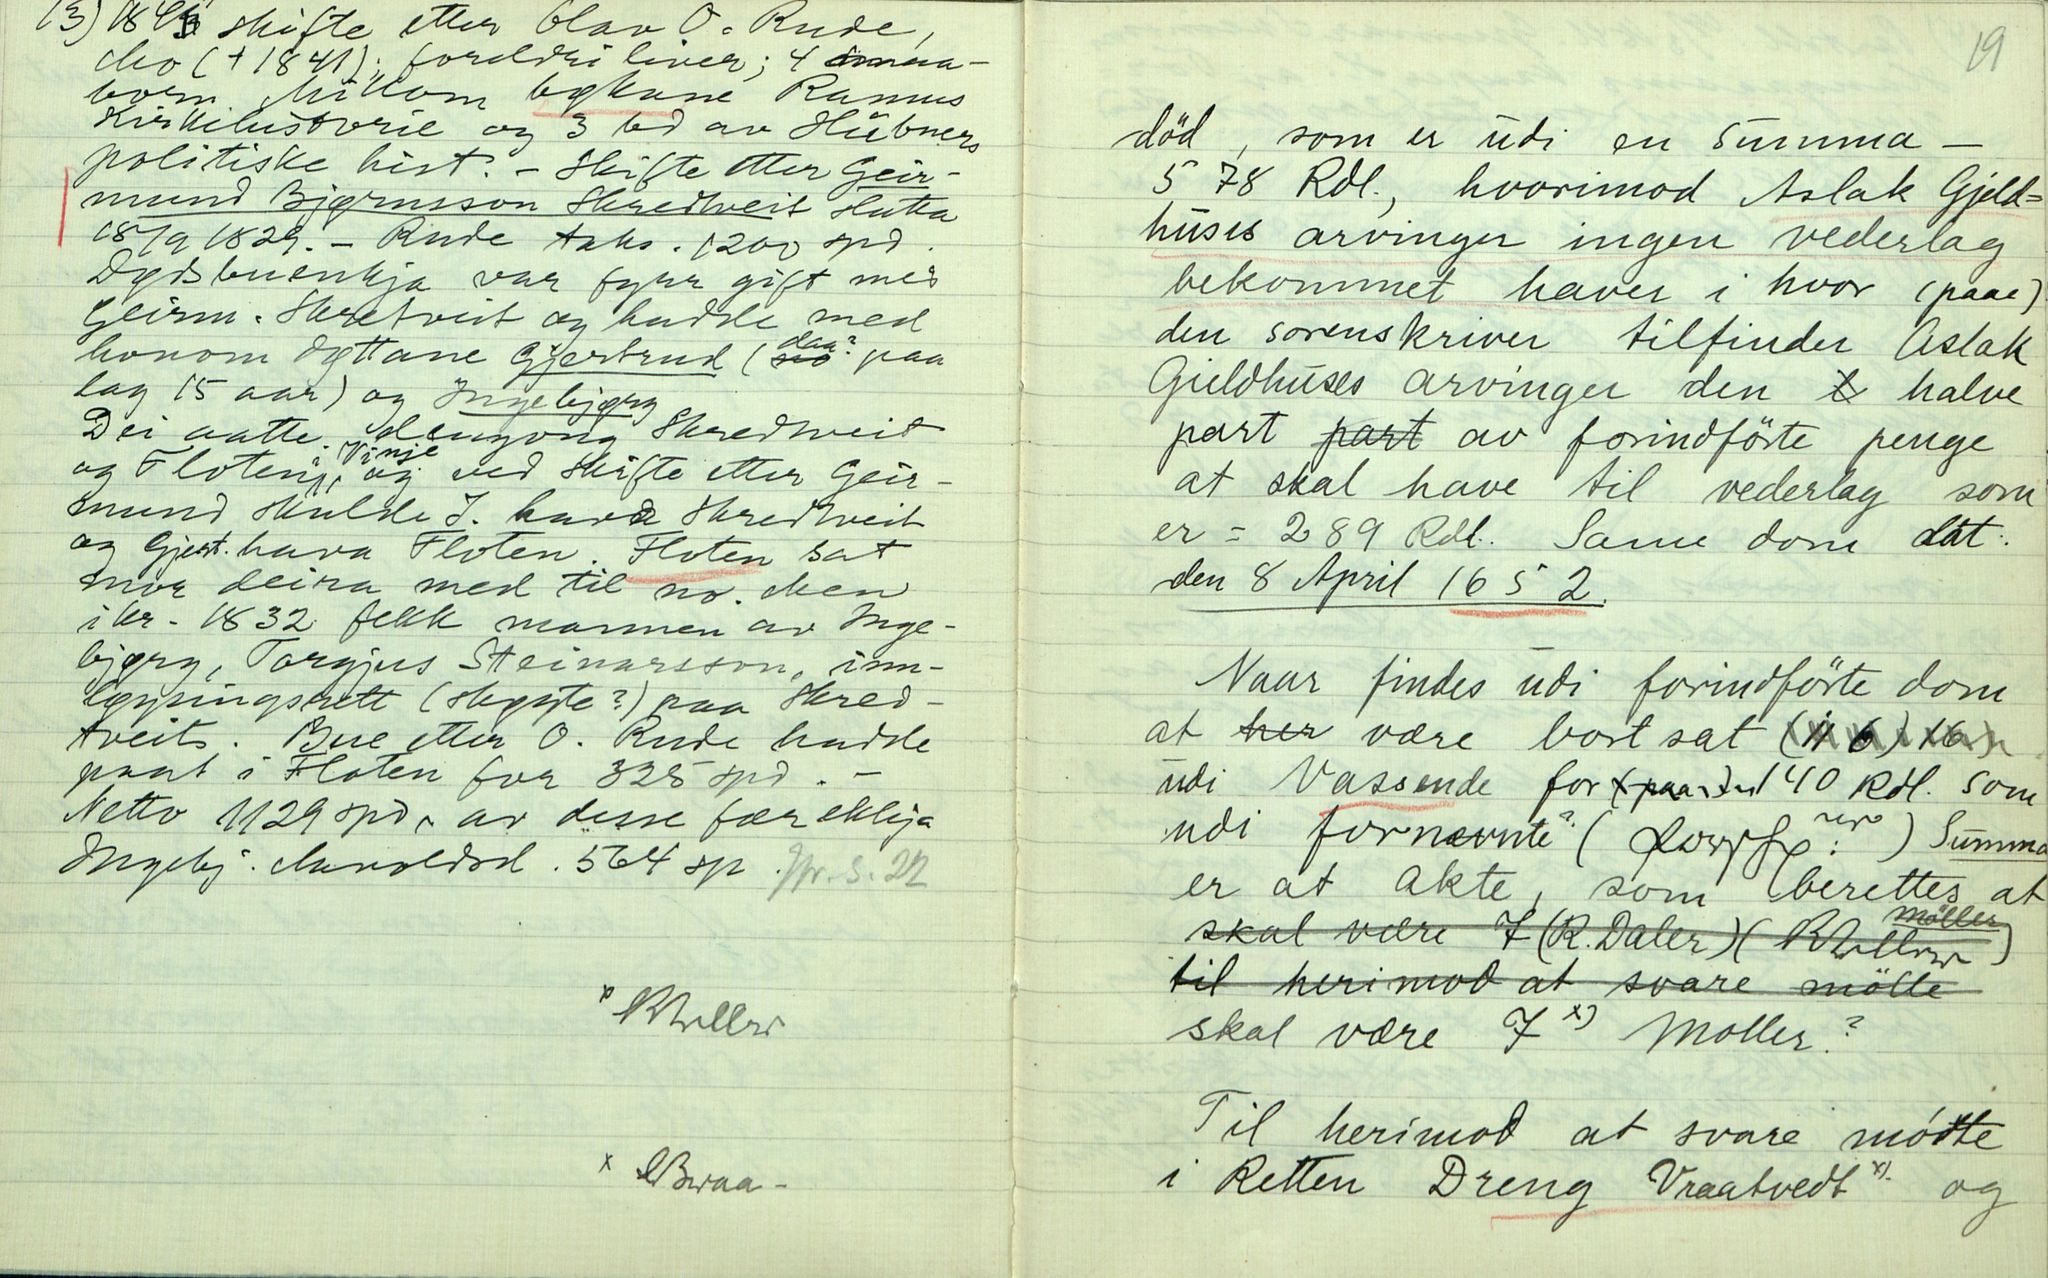 13) 1843 skifte etter Olav O. Rude,
Mo (+ 1841); foreldri liver; 4 smaa-
born. Millom bøkane Ramus
Kirkehistorie og 3 bd av Hübners
politiske hist. - Skifte etter Geir-
mund Bjørnsson Skredtveit slutta
18/9 1829. - Rude taks. 1200 spd.
Dødsbuenkja var fyrr gift med
Geirm. Skretveit og hadde med
honom døttane Gjertrud (no daa? paa
lag 15 aar) og Ingebjørg
Dei aatte dengong Skredtveit
og Floten i Vinje, og ved skifte etter Geir-
mund skulde I. hava Skredtveit
og Gjert. hava Floten. Floten sat
mor deira med til no. Men
ikr. 1832 fekk mannen av Inge-
bjørg, Torgjus Steinarsson, inn-
løysingsrett (skøyte?) paa Skred-
tveit. Bue etter O. Rude hadde
pant i Floten for 325 spd. -
Netto 1129 spd, av desse fær ekkja
Ingebj. 564 sp. Jfr. S. 22
19
död, som er udi en Summa -
578 Rdl., hvorimod Aslak Gjeld=
huses arvinger ingen vederlag
bekommet haver i hvor (paae)
den sorenskriver tilfinder Aslak
Gieldhuses arvinger den halve
part part av forindförte penge
at skal have til vederlag som
er = 289 Rdl. Same dom dat.
den 8 April 1652.
Naar findes udi forindförte dom
at her være bort sat
udi Vassende for 140 Rdl. som
udi fornævnte? ( ) Summa
er at akte, som berettes at
skal være 7 (R. Daler) ( Möller )
til herimod at svare mölte
skal være 7 x) Moller?
Til herimod at svare mödte
i Retten Dreng Vraatvedt x) og